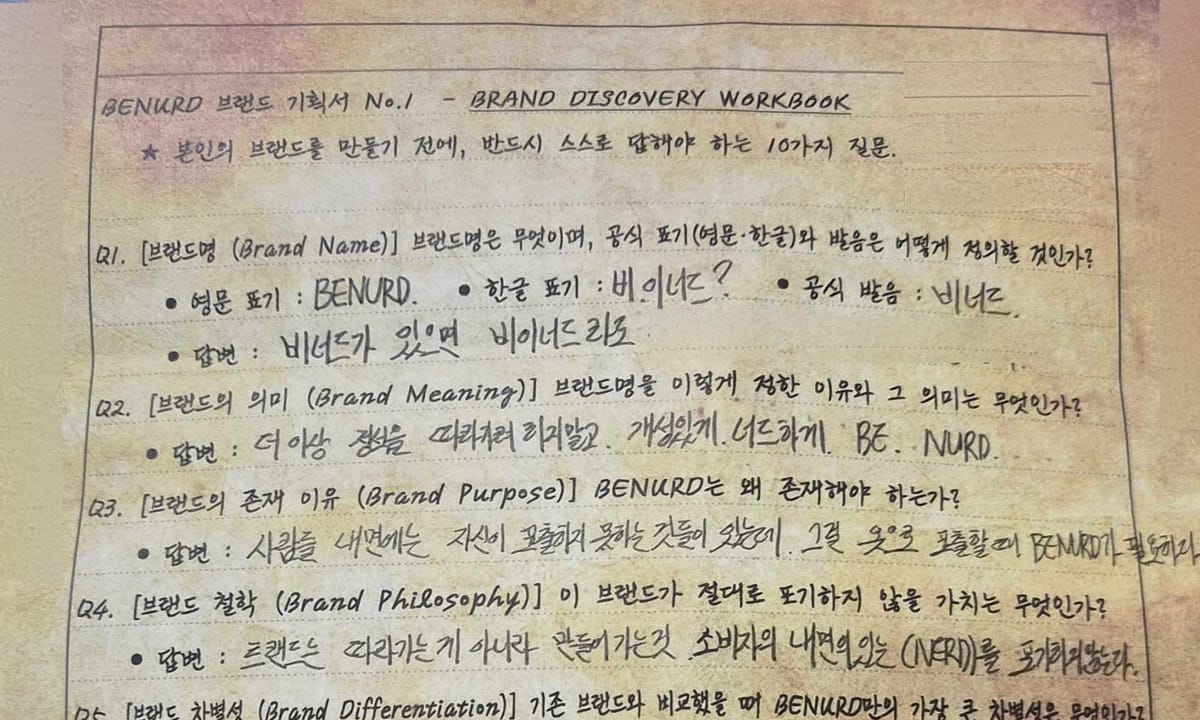 BENURD 브랜드 기획서 No.1 - BRAND DISCOVERY WORKBOOK
★ 본인의 브랜드를 만들기 전에, 반드시 스스로 답해야 하는 10가지 질문.
Q1. [브랜드명 (Brand Name)] 브랜드명은 무엇이며, 공식 표기(영문·한글)와 발음은 어떻게 정의할 것인가?
• 영문 표기 : BENURD. • 한글 표기 : 비.이너드? • 공식 발음 : 비너드.
• 답변 : 비너드가 있으면 비이너드라도
Q2. [브랜드의 의미 (Brand Meaning)] 브랜드명을 이렇게 정한 이유와 그 의미는 무엇인가?
• 답변 : 더이상 정석을 따라가려 하지말고. 개성있게. 너드하게. BE. NURD.
Q3. [브랜드의 존재 이유 (Brand Purpose)] BENURD는 왜 존재해야 하는가?
• 답변 : 사람들 내면에는 자신이 표출하지 못하는 것들이 있는데. 그걸 옷으로 표출할때 BENURD가 필요하다
Q4. [브랜드 철학 (Brand Philosophy)] 이 브랜드가 절대로 포기하지 않을 가치는 무엇인가?
• 답변 : 트랜드는 따라가는게 아니라 만들어가는것. 소비자의 내면의있는 (NERD)를 포기하지않는다.
Q5. [브랜드 차별성 (Brand Differentiation)] 기존 브랜드와 비교했을 때 BENURD만의 가장 큰 차별성은 무엇인가?